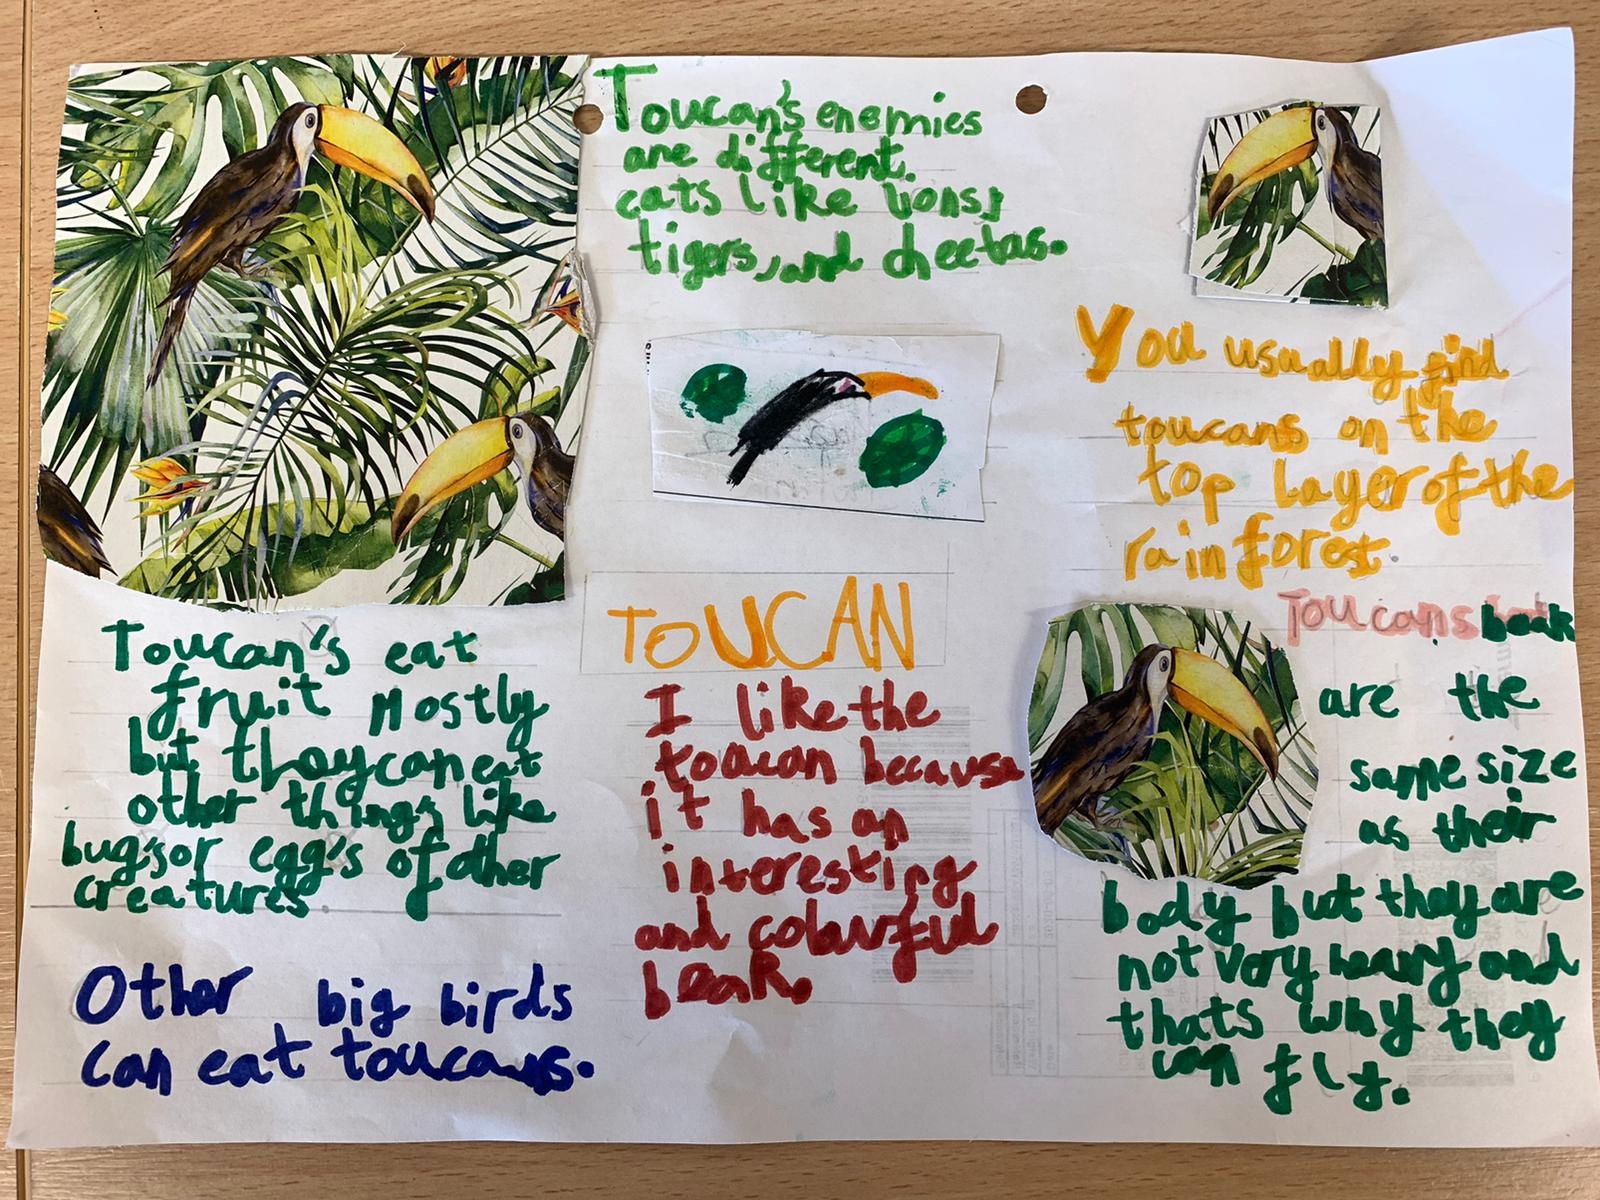 Toucan's enemies
are different.
cats like lions,
tigers, and cheetas.
You usually find
toucans on the
top layer of the
rainforest.
Toucan's eat
fruit mostly
but they can eat
other things like
bug's or egg's of other
creatures.
Other big birds
can eat toucans.
TOUCAN
I like the
toucan because
it has an
interesting
and colourful
beak.
Toucans beak
are the
same size
as their
body but they are
not very heavy and
thats why they
can fly.